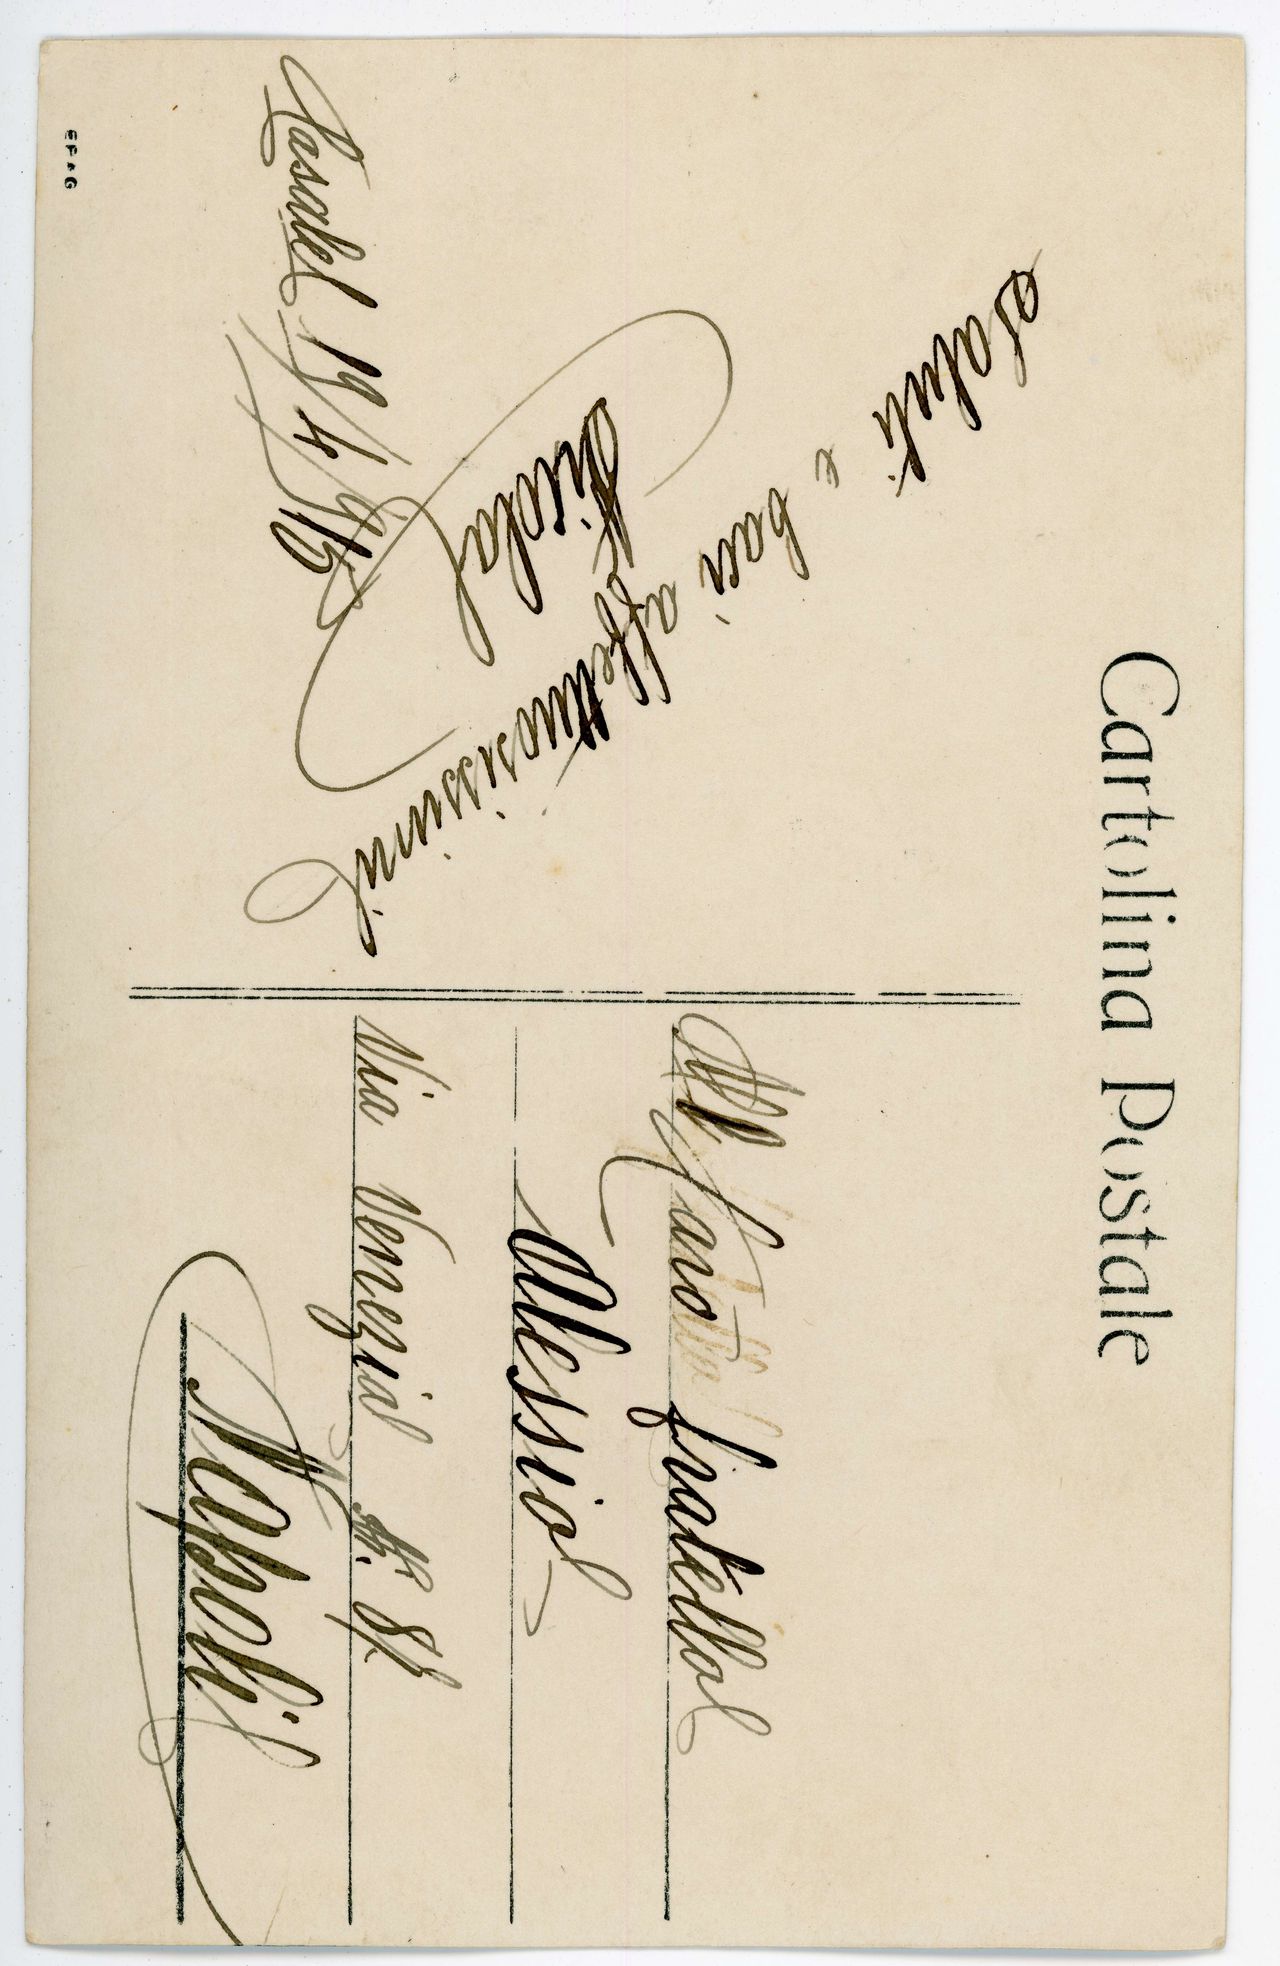 Cartolina Postale
Saluti
e baci affettuosissimi
Nicola
Casale 19/4/915
Al caro fratello
Alessio
Via Venezia N.
Napoli